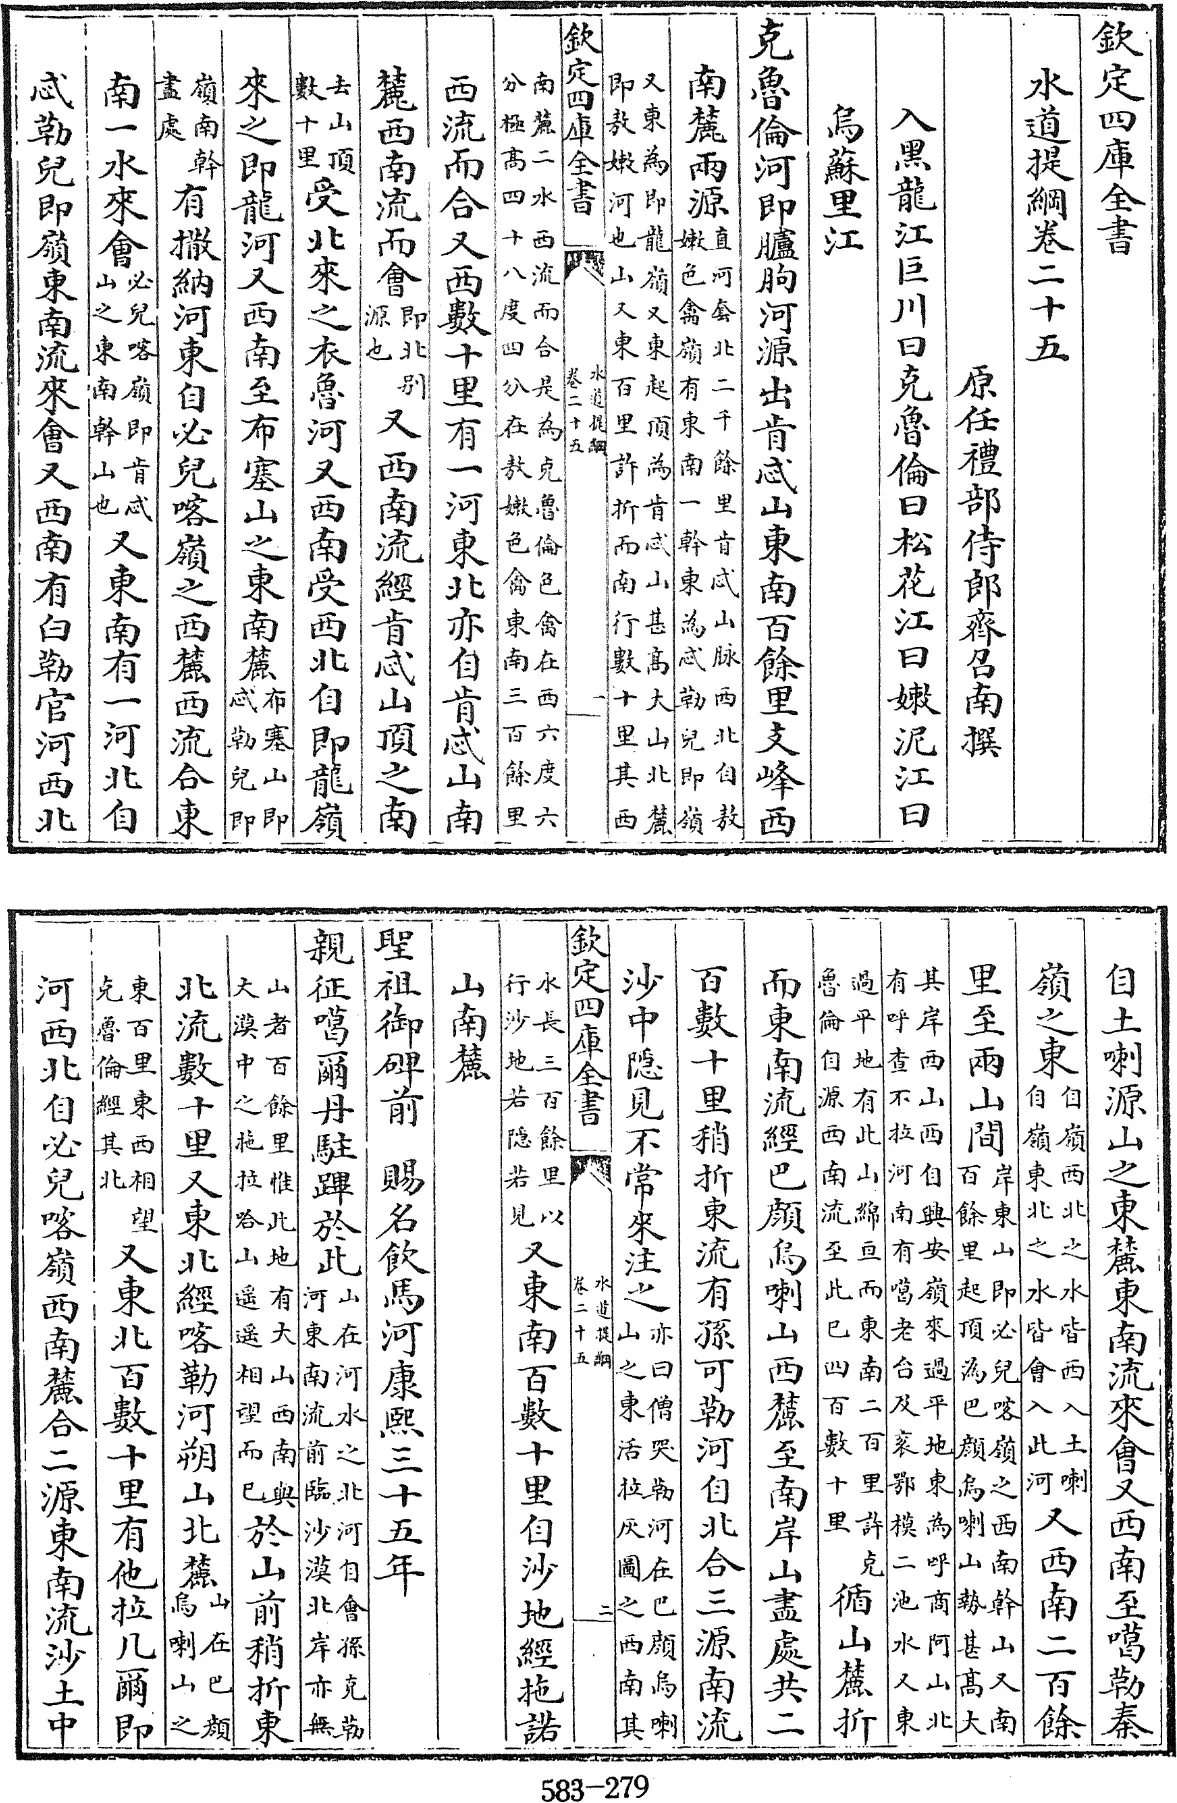 欽定四庫全書
水道提綱卷二十五
原任禮部侍郎齊召南撰
入黑龍江巨川曰克魯倫曰松花江曰嫩泥江曰
烏蘇里江
克魯倫河即臚朐河源出肯忒山東南百餘里支峰西
南麓兩源直河套北二千餘里肯忒山脉西北自敖
嫩色禽嶺有東南一幹東為忒勒兒即嶺
又東為即龍嶺又東起頂為肯忒山甚高大山北麓
即敖嫩河也山又東百里許折而南行數十里其西
欽定四庫全書
水道提綱
卷二十五
一
南麓二水西流而合是為克魯倫色禽在西六度六
分極高四十八度四分在敖嫩色禽東南三百餘里
西流而合又西數十里有一河東北亦自肯忒山南
麓西南流而會即北別
源也又西南流經肯忒山頂之南
去山頂
數十里受北來之衣魯河又西南受西北自即龍嶺
來之即龍河又西南至布塞山之東南麓布塞山即
忒勒兒即
嶺南幹
盡處有撒納河東自必兒喀嶺之西麓西流合東
南一水來會必兒喀嶺即肯忒
山之東南幹山也又東南有一河北自
忒勒兒即嶺東南流來會又西南有白勒官河西北
自土喇源山之東麓東南流來會又西南至噶勒泰
嶺之東自嶺西北之水皆西入土喇
自嶺東北之水皆會入此河又西南二百餘
里至兩山間岸東山即必兒喀嶺之西南幹山又南
百餘里起頂為巴顏烏喇山勢甚高大
其岸西山西自興安嶺來過平地東為呼商阿山北
有呼查不拉河南有噶老台及衮鄂模二池水又東
過平地有此山綿亘而東南二百里許克
魯倫自源西南流至此已四百數十里循山麓折
而東南流經巴顏烏喇山西麓至南岸山盡處共二
百數十里稍折東流有孫可勒河自北合三源南流
沙中隱見不常來注之亦曰僧哭勒河在巴顏烏喇
山之東活拉灰圖之西南其
欽定四庫全書
水道提綱
卷二十五
二
水長三百餘里以
行沙地若隱若見又東南百數十里自沙地經拖諾
山南麓
聖祖御碑前　賜名飲馬河康熙三十五年
親征噶爾丹駐蹕於此山在河水之北河自會孫克勒
河東南流前臨沙漠北岸亦無
山者百餘里惟此地有大山西南與
大漠中之拖拉哈山遥遥相望而已於山前稍折東
北流數十里又東北經喀勒河朔山北麓山在巴顏
烏喇山之
東百里東西相望
克魯倫經其北又東北百數十里有他拉几爾即
河西北自必兒喀嶺西南麓合二源東南流沙土中
583-279